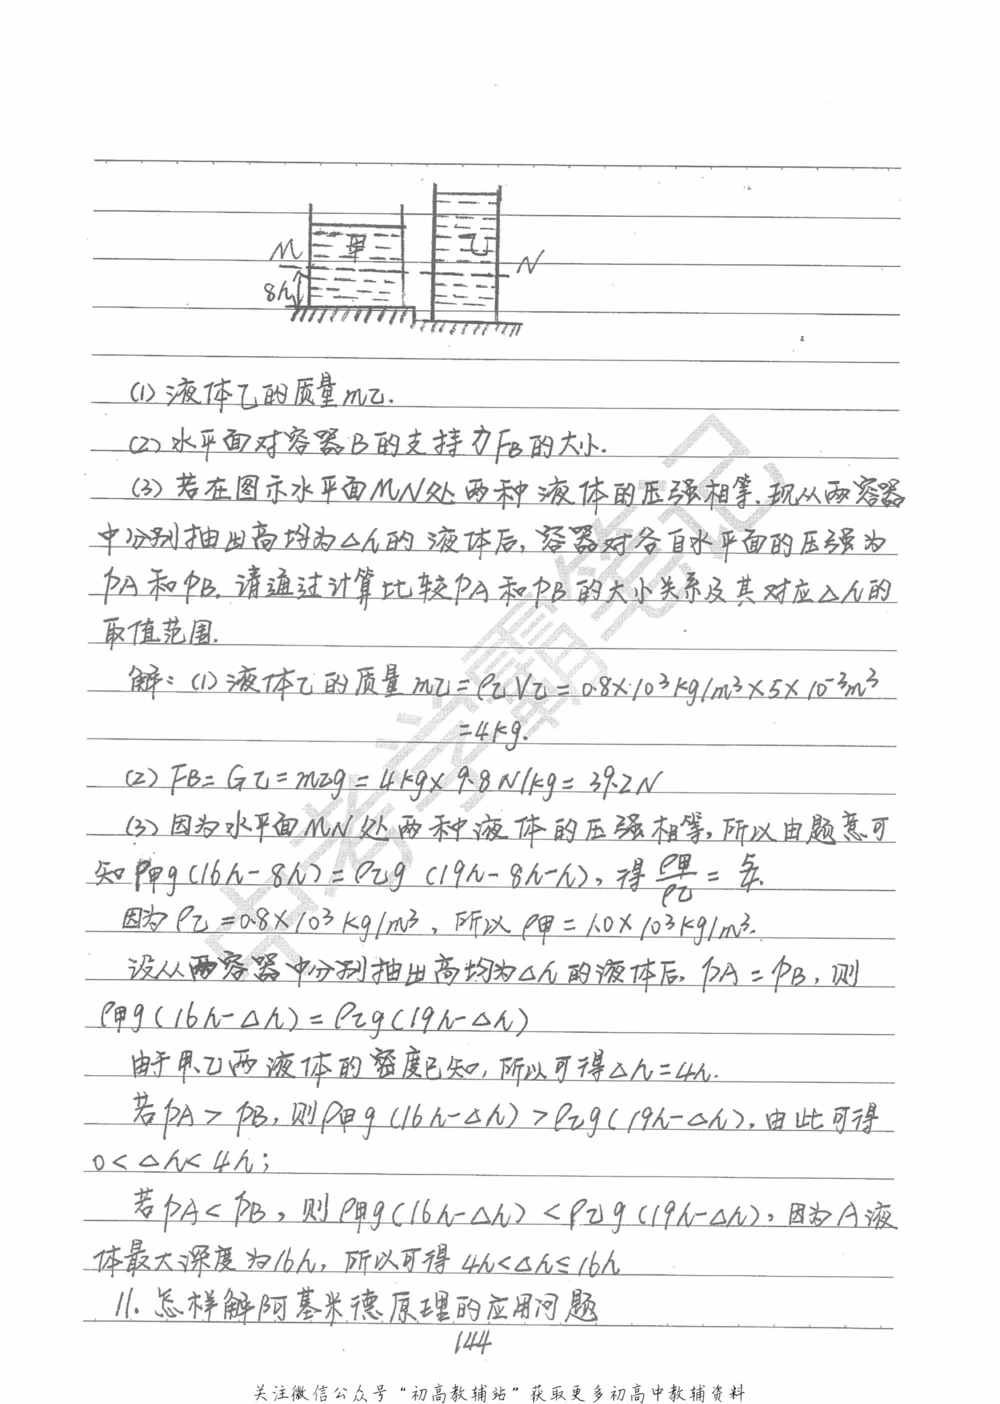 甲
乙
M
N
8h
(1)液体乙的质量m乙.
(2)水平面对容器B的支持力FB的大小.
(3)若在图示水平面MN处两种液体的压强相等,现从两容器
中分别抽出高均为△h的液体后,容器对各自水平面的压强为
PA和PB.请通过计算比较PA和PB的大小关系及其对应△h的
取值范围.
解:(1)液体乙的质量m乙=ρ乙V乙=0.8×10³kg/m³×5×10⁻³m³
=4kg.
(2)FB=G乙=m乙g=4kg×9.8N/kg=39.2N
(3)因为水平面MN处两种液体的压强相等,所以由题意可
知ρ甲g(16h-8h)=ρ乙g(19h-8h-h),得ρ甲/ρ乙=5/4.
因为ρ乙=0.8×10³kg/m³,所以ρ甲=1.0×10³kg/m³.
设从两容器中分别抽出高均为△h的液体后,PA=PB,则
ρ甲g(16h-△h)=ρ乙g(19h-△h)
由于甲、乙两液体的密度已知,所以可得△h=4h.
若PA>PB,则ρ甲g(16h-△h)>ρ乙g(19h-△h),由此可得
0<△h<4h;
若PA<PB,则ρ甲g(16h-△h)<ρ乙g(19h-△h),因为A液
体最大深度为16h,所以可得4h<△h≤16h
11.怎样解阿基米德原理的应用问题
144
中考学霸笔记
关注微信公众号“初高教辅站”获取更多初高中教辅资料